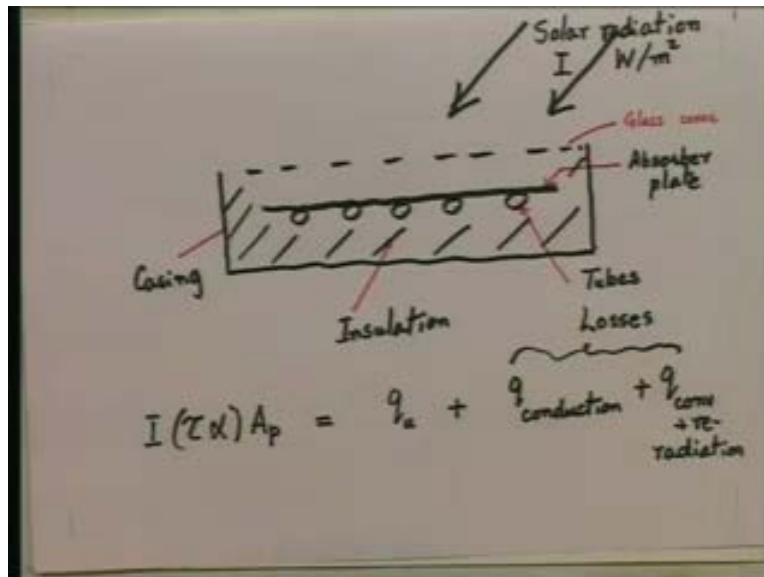 Solar radiation
I W/m²
Glass cover
Absorber plate
Casing
Tubes
Insulation
Losses
I (τα) Ap = qu + q conduction + q conv
+ re-
radiation